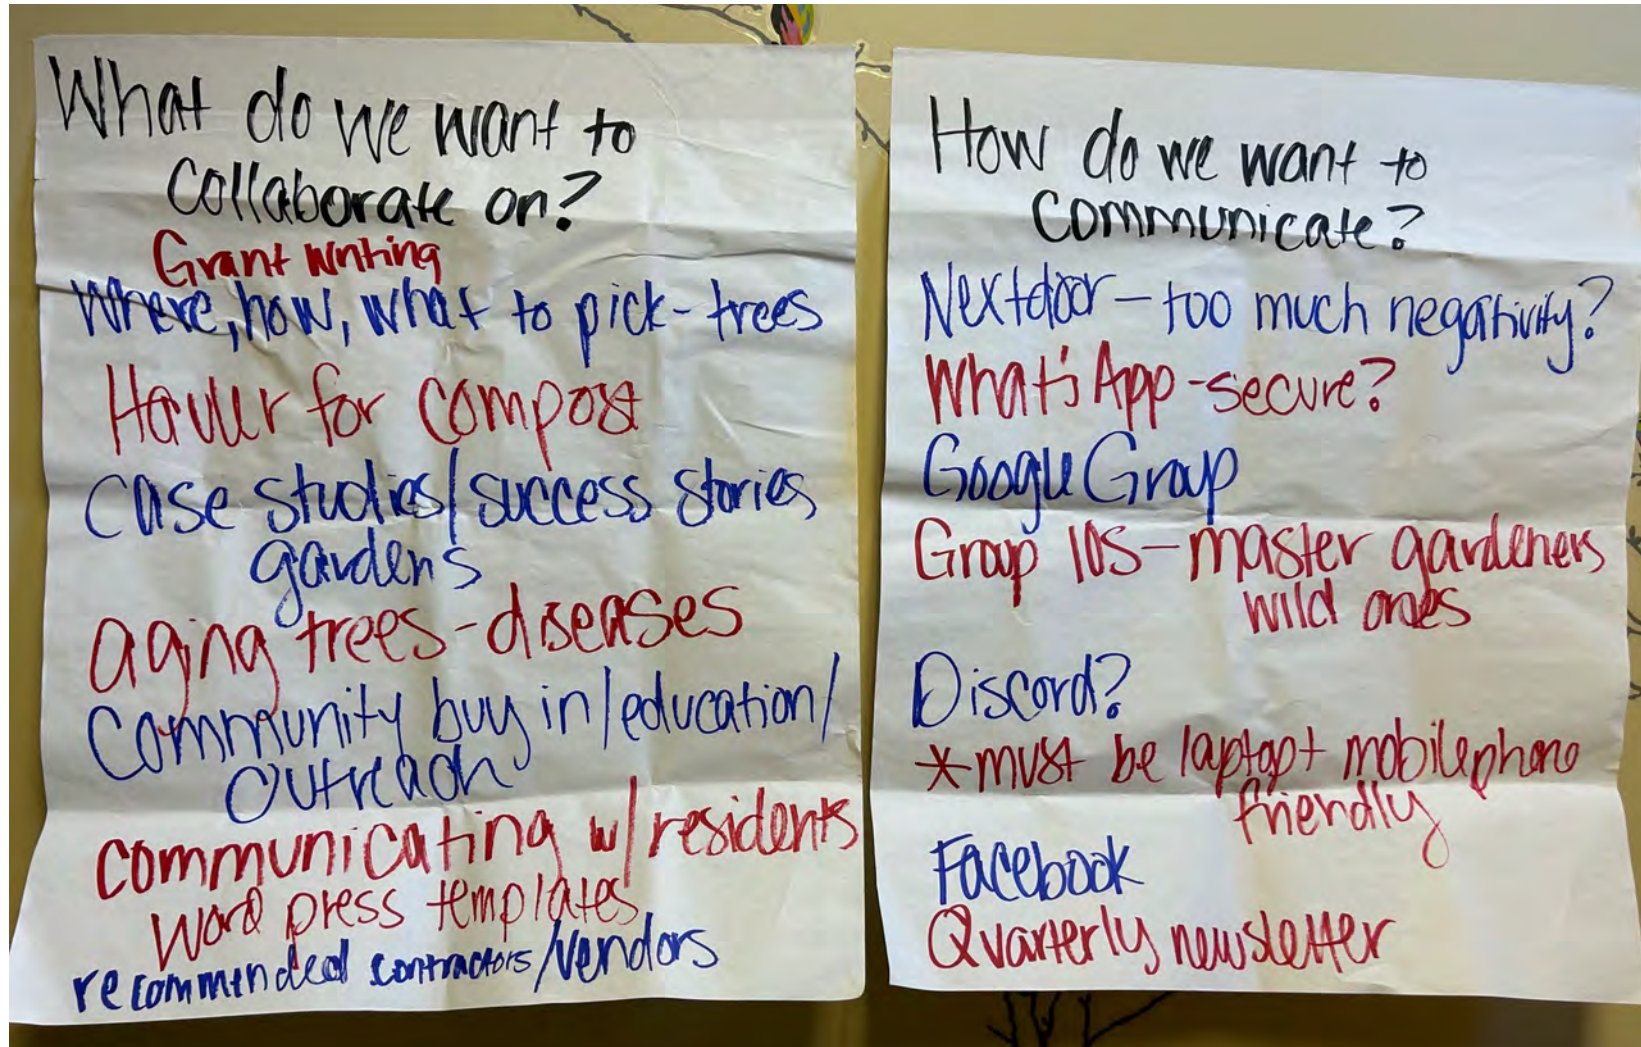 What do we want to
collaborate on?
Grant writing
Where, how, what to pick - trees
Hauler for compost
case studies/success stories
gardens
aging trees - diseases
Community buy in/education/
outreach
communicating w/ residents
Word press templates
recommended contractors/vendors
How do we want to
communicate?
Nextdoor - too much negativity?
What'sApp - secure?
Google Group
Group IOS - master gardeners
wild ones
Discord?
*must be laptop + mobile phone
friendly
Facebook
Quarterly newsletter